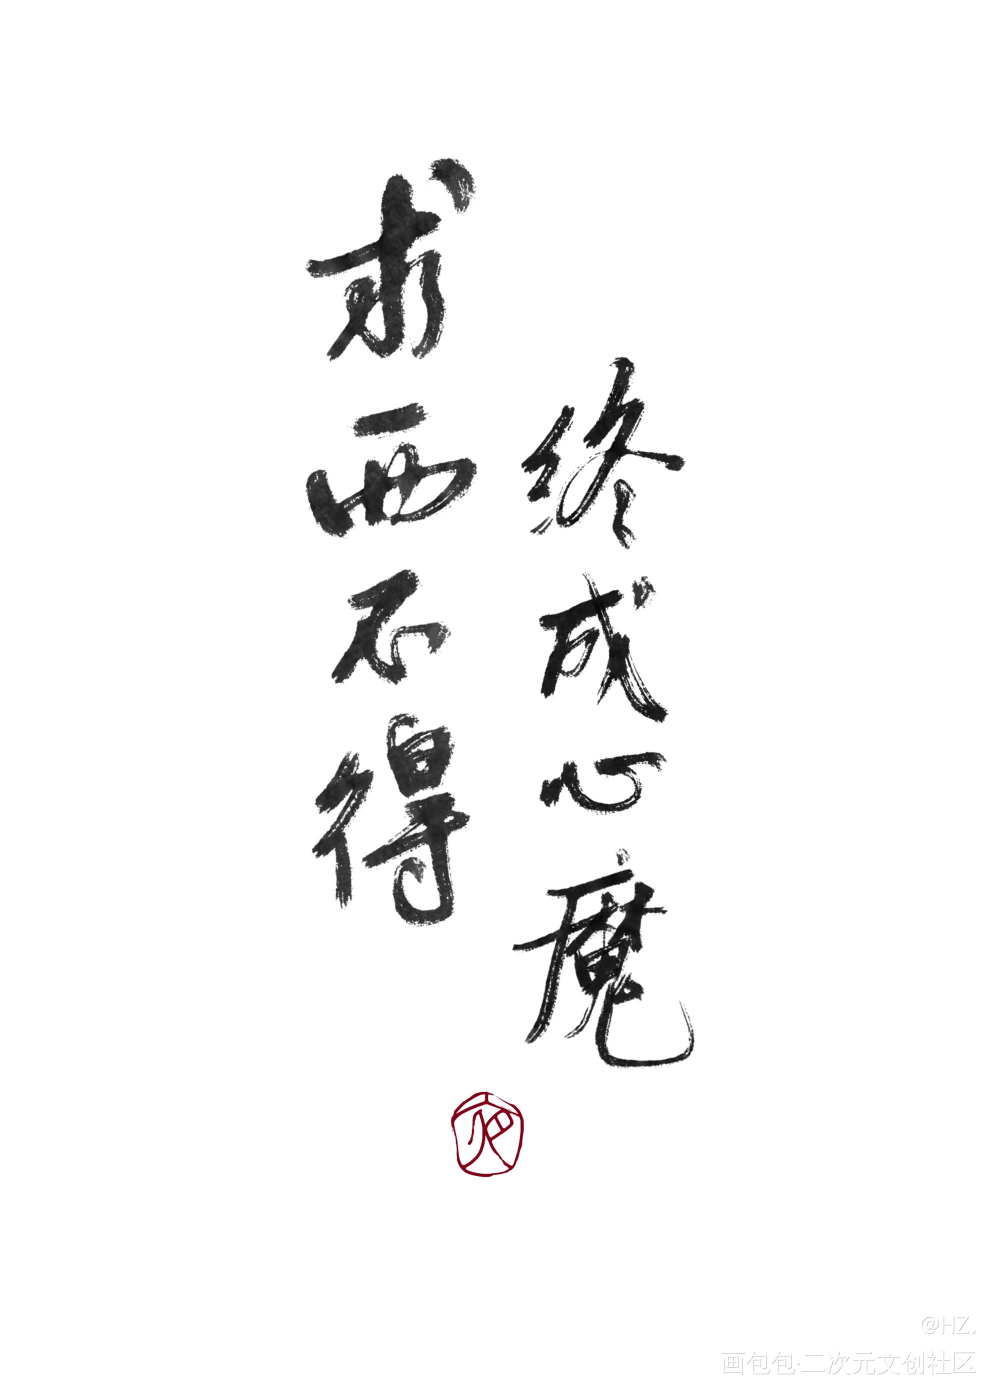 求而不得
终成心魔
@HZ.
画包包·二次元文创社区